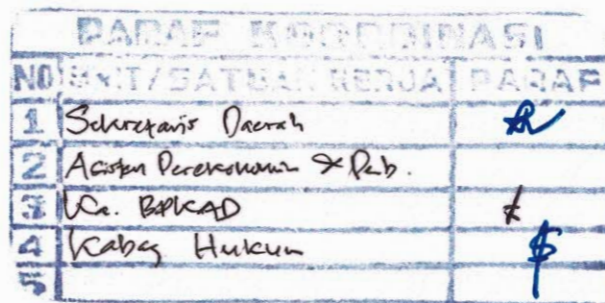 PARAF KOORDINASI
NO UNIT/SATUAN KERJA PARAF
1 Sekretaris Daerah
2 Asisten Perekonomian & Pemb.
3 Ka. BPKAD
4 Kabag Hukum
5